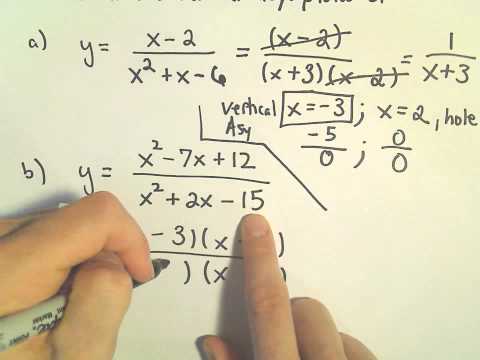 a) y = x - 2 / x² + x - 6 = (x - 2) / (x + 3)(x - 2) = 1 / x + 3
vertical Asy x = -3 ; x = 2, hole
-5 / 0 ; 0 / 0
b) y = x² - 7x + 12 / x² + 2x - 15
- 3)(x )
)(x )